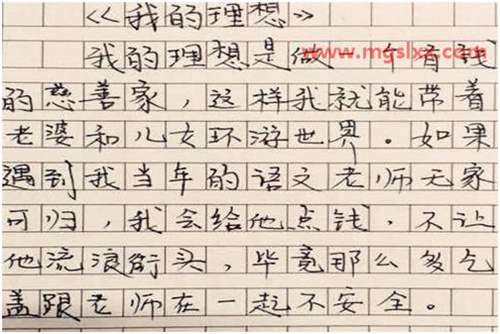 《我的理想》
我的理想是做一个有钱
www.mgslxz.com
的慈善家，这样我就能带着
老婆和儿女环游世界。如果
遇到我当年的语文老师无家
可归，我会给他点钱，不让
他流浪街头，毕竟那么多乞
盖跟老师在一起不安全。